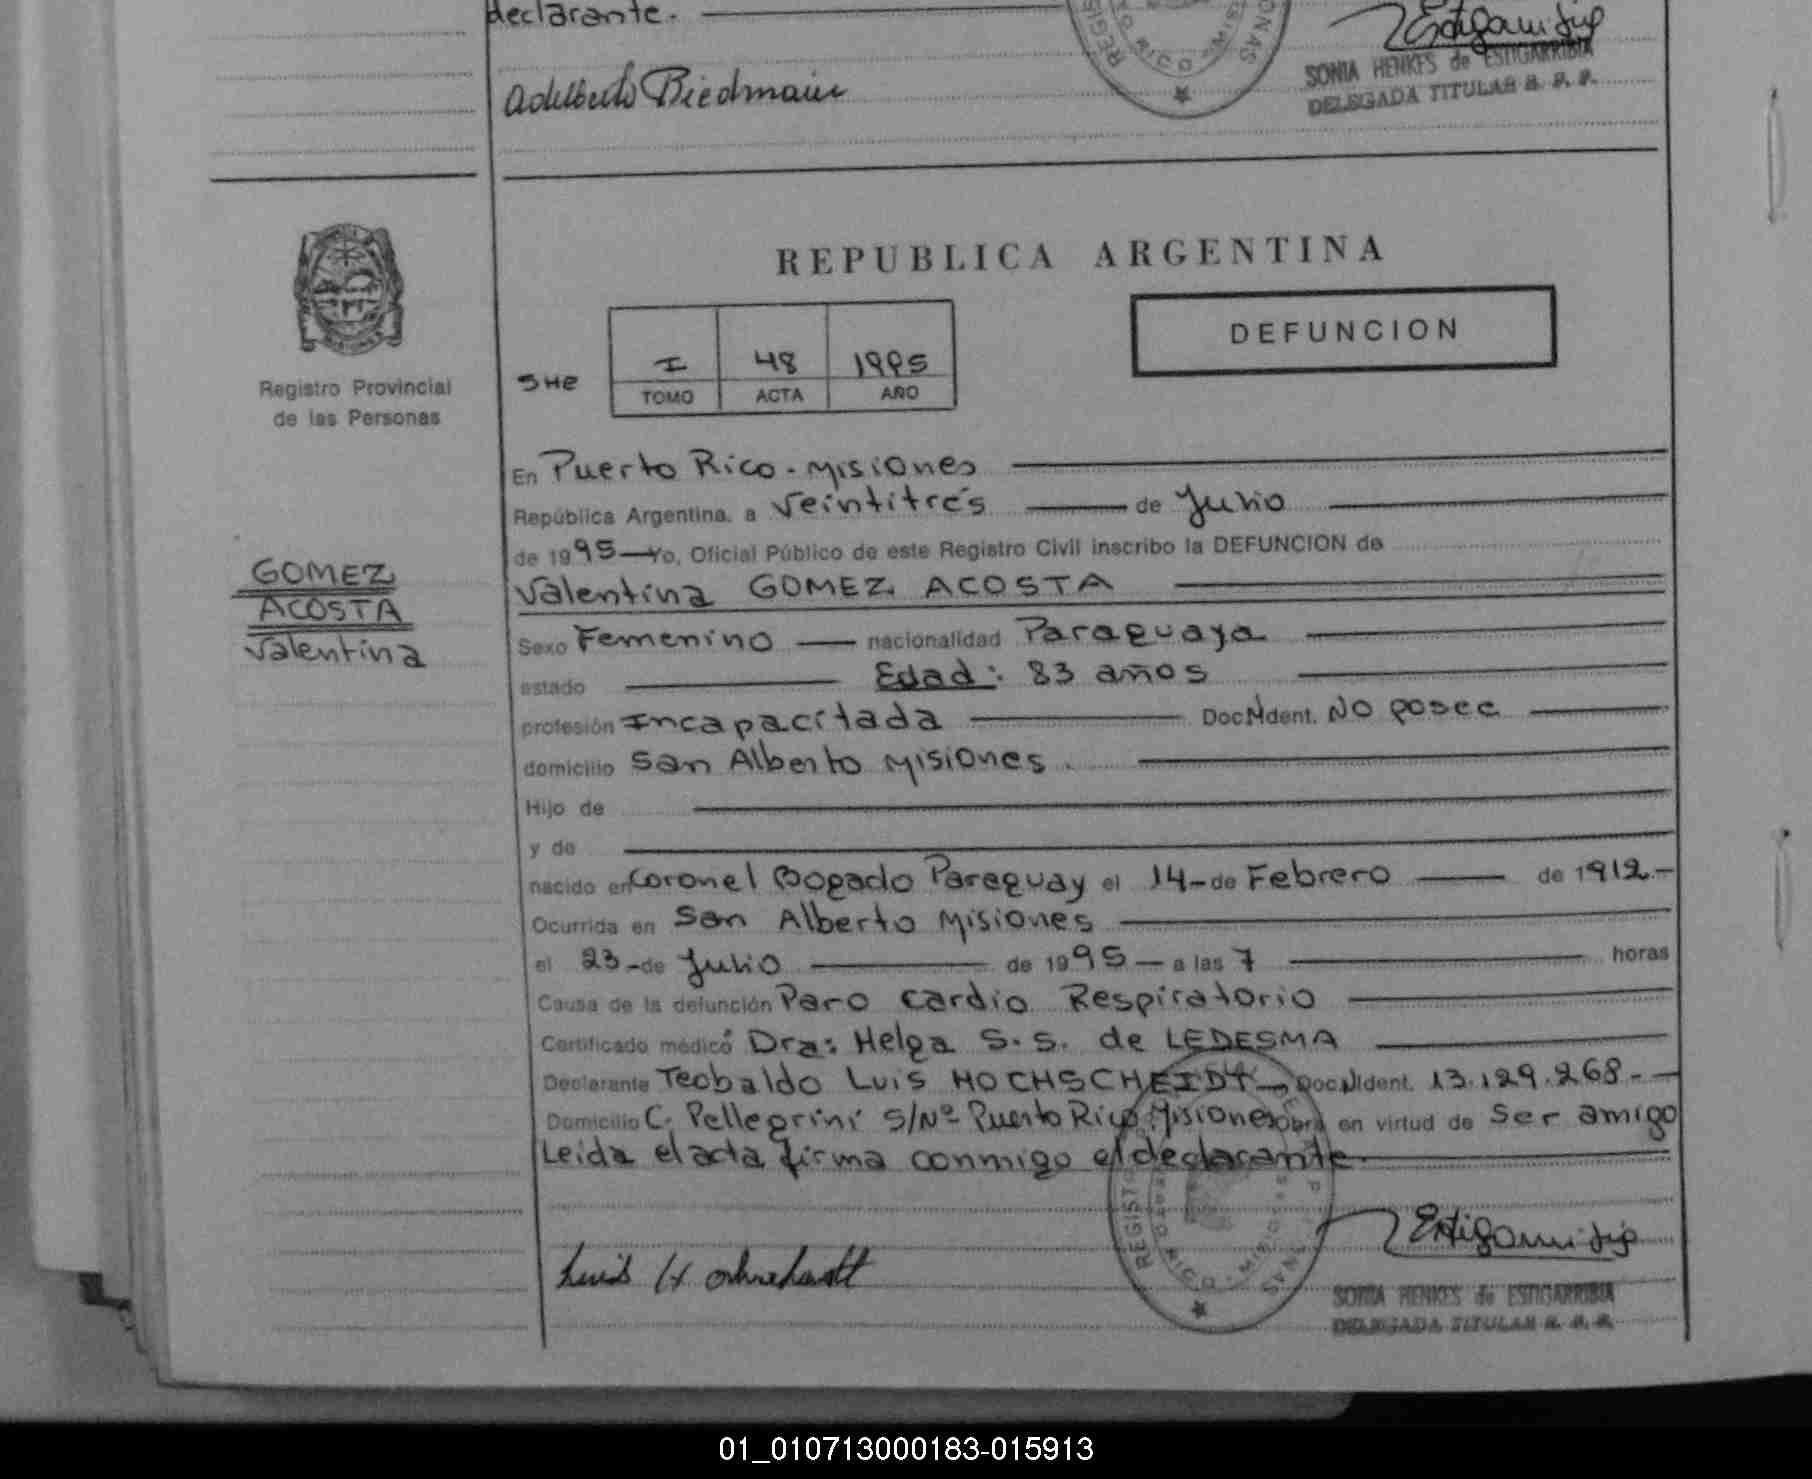 declarante.
Adelberto Biedmaier
SONIA HENKES de ESTIGARRIBIA
DELEGADA TITULAR R. P. P.
REPUBLICA ARGENTINA
DEFUNCION
Registro Provincial
de las Personas
SHE
I 48 1995
TOMO ACTA AÑO
En Puerto Rico - Misiones
República Argentina, a Veintitrés de Julio
de 1995 Yo, Oficial Público de este Registro Civil inscribo la DEFUNCION de
Valentina GOMEZ ACOSTA
GOMEZ
ACOSTA
Valentina
Sexo Femenino nacionalidad Paraguaya
estado Edad: 83 años
profesión Incapacitada Doc. Ident. No posee
domicilio San Alberto Misiones.
Hijo de
y de
nacido en Coronel Bogado Paraguay el 14 - de Febrero de 1912.-
Ocurrida en San Alberto Misiones
el 23 - de Julio de 1995 - a las 7 horas
Causa de la defunción Paro Cardio Respiratorio
Certificado médico Dra: Helga S.S. de LEDESMA
Declarante Teobaldo Luis HOCHSCHEIDT Doc. N Ident. 13.129.268.-
Domicilio C. Pellegrini S/Nº Puerto Rico Misiones Obra en virtud de Ser amigo
Leida el acta firma conmigo el declarante.
SONIA HENKES de ESTIGARRIBIA
DELEGADA TITULAR R. P. P.
01_010713000183-015913